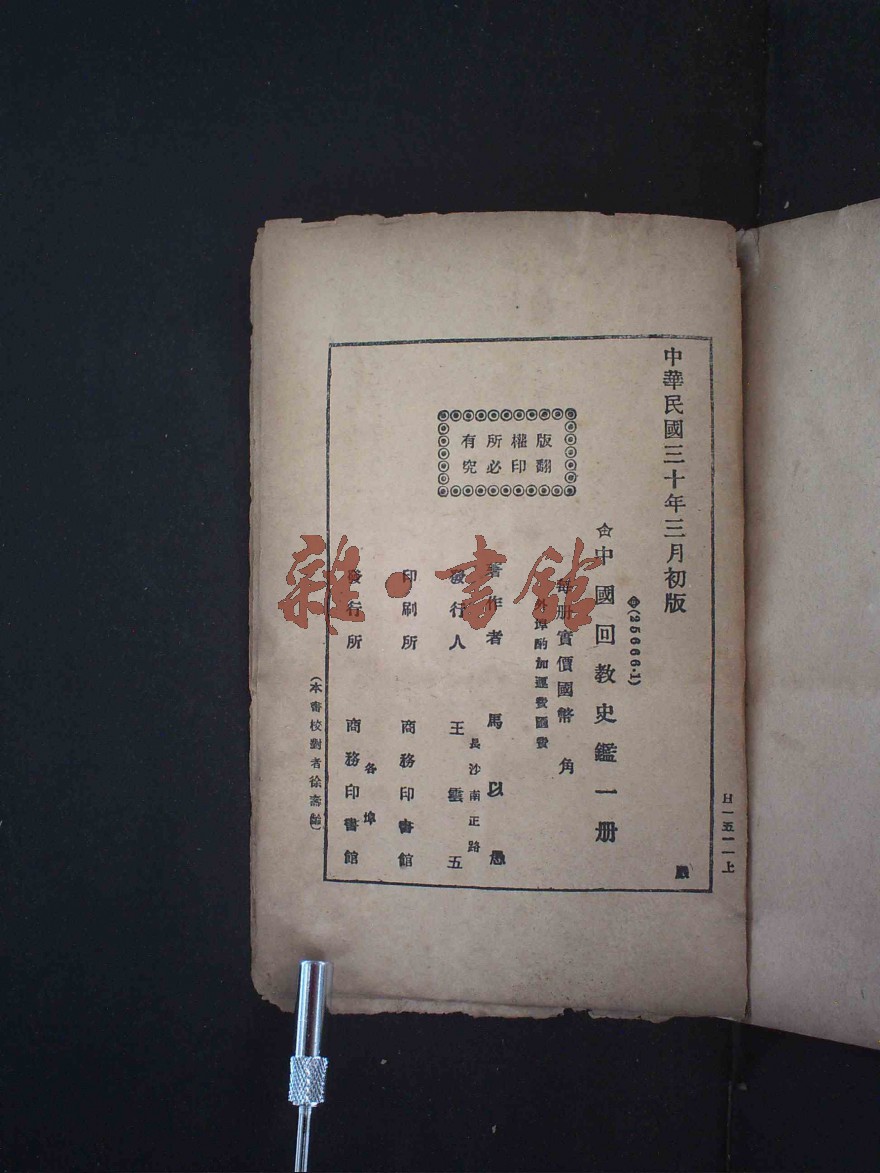 中華民國三十年三月初版
版權所有
翻印必究
(25666·1)
中國回教史鑑一册
每册實價國幣 角
外埠酌加運費匯費
著作者 馬以愚
發行人 王雲五
長沙南正路
印刷所 商務印書館
發行所 商務印書館
各埠
(本書校對者徐壽齡)
H一五一一上
雜·書館